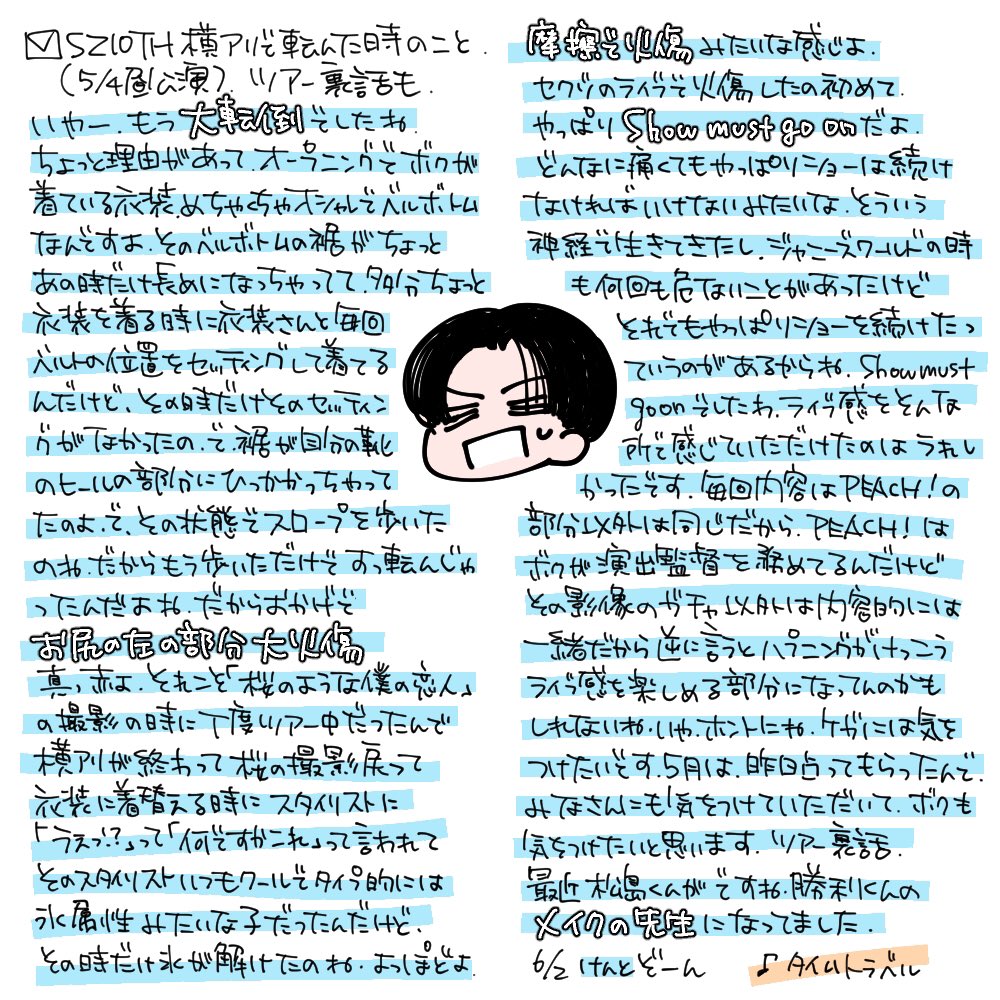 SZ10TH 横アリで転んだ時のこと.
(5/4昼公演). ツアー裏話も.
いやー.もう大転倒でしたね.
ちょっと理由があって.オープニングでボクが
着ている衣装.めちゃくちゃオシャレでベルボトム
なんですよ.そのベルボトムの裾がちょっと
あの時だけ長めになっちゃってて.多分ちょっと
衣装を着る時に衣装さんと毎回
ベルトの位置をセッティングして着てる
んだけど、その時だけそのセッティン
グがなかったの.で.裾が自分の靴
のヒールの部分にひっかかっちゃって
たのよ.で、その状態でスロープを歩いた
のね.だからもう歩いただけですっ転んじゃ
ったんだよね.だからおかげで
お尻の左の部分大火傷
真っ赤よ.それこそ「桜のような僕の恋人」
の撮影の時に丁度ツアー中だったんで
横アリが終わって桜の撮影戻って
衣装に着替える時にスタイリストに
「うぇっ!?」って「何ですかこれ」って言われて
そのスタイリストいつもクールでタイプ的には
氷属性みたいな子だったんだけど、
その時だけ氷が解けたのね.よっぽどよ.
摩擦で火傷みたいな感じよ.
セクゾのライブで火傷したの初めて.
やっぱりShow must go onだよ.
どんなに痛くてもやっぱりショーは続け
なければいけないみたいな.そういう
神経で生きてきたし.ジャニーズワールドの時
も何回も危ないことがあったけど
それでもやっぱりショーを続けたっ
ていうのがあるからね.Show must
go onでしたね.ライブ感をそんな
所で感じていただけたのはうれし
かったです.毎回内容はPEACH!の
部分以外は同じだから.PEACH!は
ボクが演出監督を務めてるんだけど
その影像のガチャ以外は内容的には
一緒だから逆に言うとハプニングがけっこう
ライブ感を楽しめる部分になってんのかも
しれないね.いや.ホントにね.ケガには気を
つけたいです.5月は.昨日占ってもらったんで.
みなさんにも気をつけていただいて.ボクも
気をつけたいと思います.ツアー裏話.
最近松島くんがですね.勝利くんの
メイクの先生になってました.
6/2 けんとぞーん ♪タイムトラベル